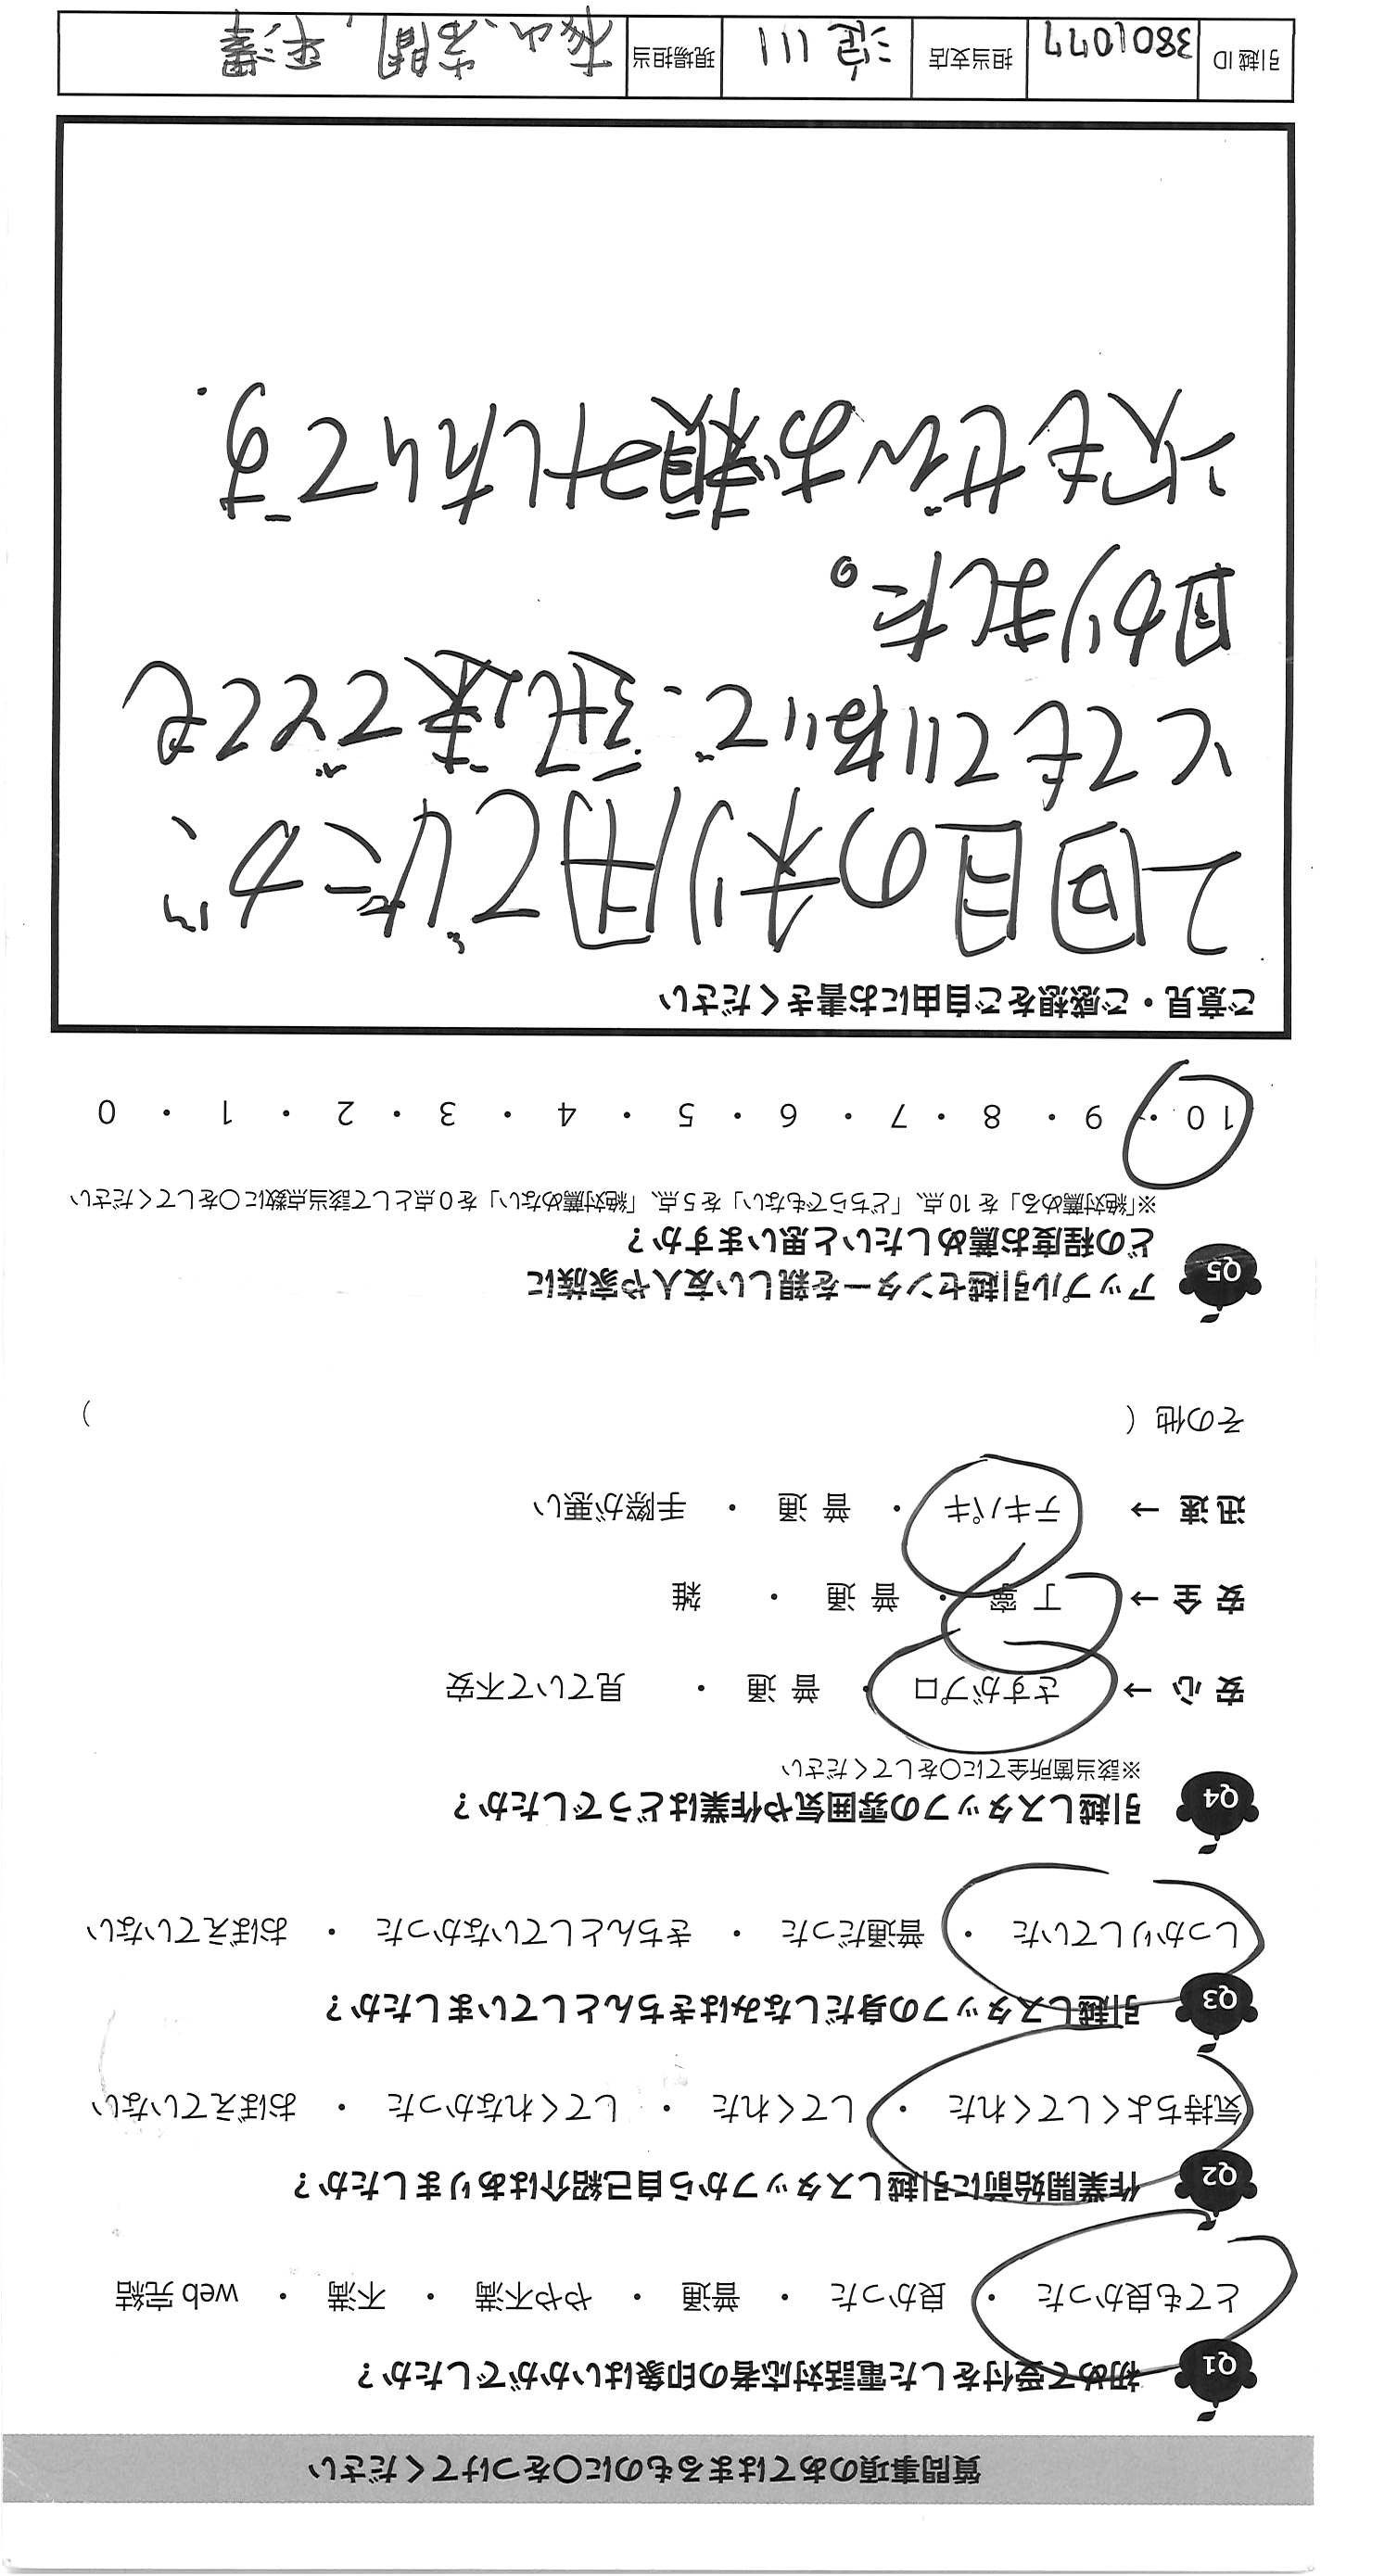 質問事項のあてはまるものに○をつけてください
Q1 初めて受付をした電話対応者の印象はいかがでしたか？
とても良かった ・ 良かった ・ 普通 ・ やや不満 ・ 不満 ・ web 完結
Q2 作業開始前に引越しスタッフから自己紹介はありましたか？
気持ちよくしてくれた ・ してくれた ・ してくれなかった ・ おぼえていない
Q3 引越しスタッフの身だしなみはきちんとしていましたか？
しっかりしていた ・ 普通だった ・ きちんとしていなかった ・ おぼえていない
Q4 引越しスタッフの雰囲気や作業はどうでしたか？
※該当箇所全てに○をしてください
安 心 → さすがプロ ・ 普 通 ・ 見ていて不安
安 全 → 丁 寧 ・ 普 通 ・ 雑
迅 速 → テキパキ ・ 普 通 ・ 手際が悪い
その他（ ）
Q5 アップル引越センターを親しい友人や家族に
どの程度お薦めしたいと思いますか？
※「絶対薦める」を 10 点、「どちらでもない」を 5 点、「絶対薦めない」を 0 点として該当点数に○をしてください
10 ・ 9 ・ 8 ・ 7 ・ 6 ・ 5 ・ 4 ・ 3 ・ 2 ・ 1 ・ 0
ご意見・ご感想をご自由にお書きください
2回目の利用でしたが、
とてもていねいで、迅速でとても
助りました。
次もぜひお願いしたいです.
引越 ID 3801077 担当支店 淀川 現場担当 桜山、宮間、平澤